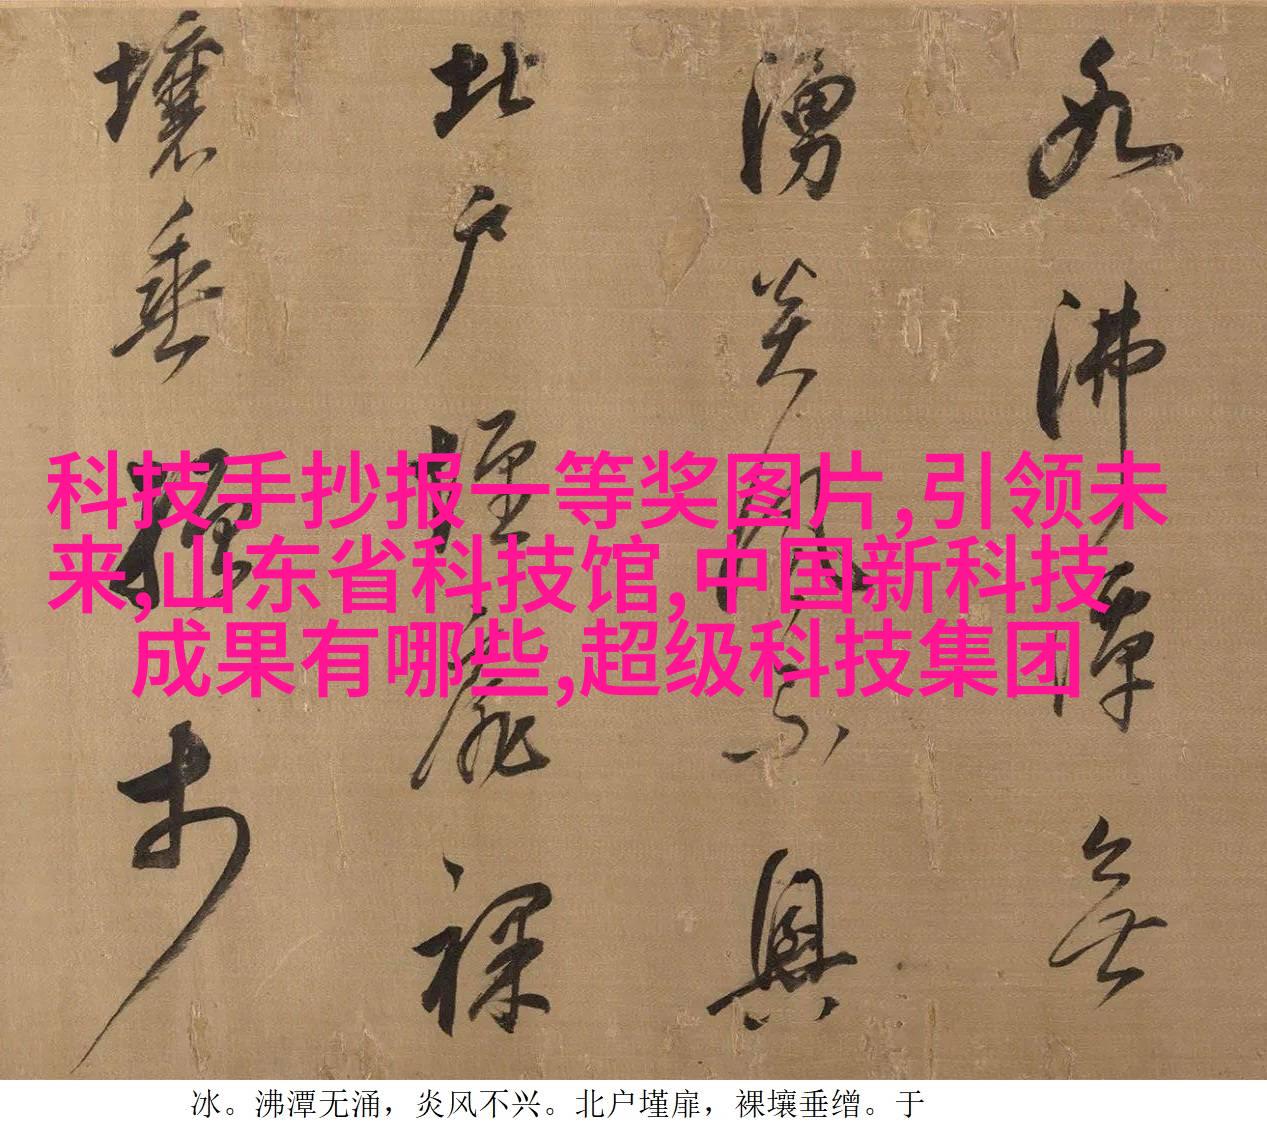 冰沸潭无
湧炎風不興
北户墐扉裸
壤垂繒于
科技手抄报一等奖图片,引领未
来,山东省科技馆,中国新科技
成果有哪些,超级科技集团
冰。沸潭无涌，炎风不兴。北户墐扉，裸壤垂缯。于